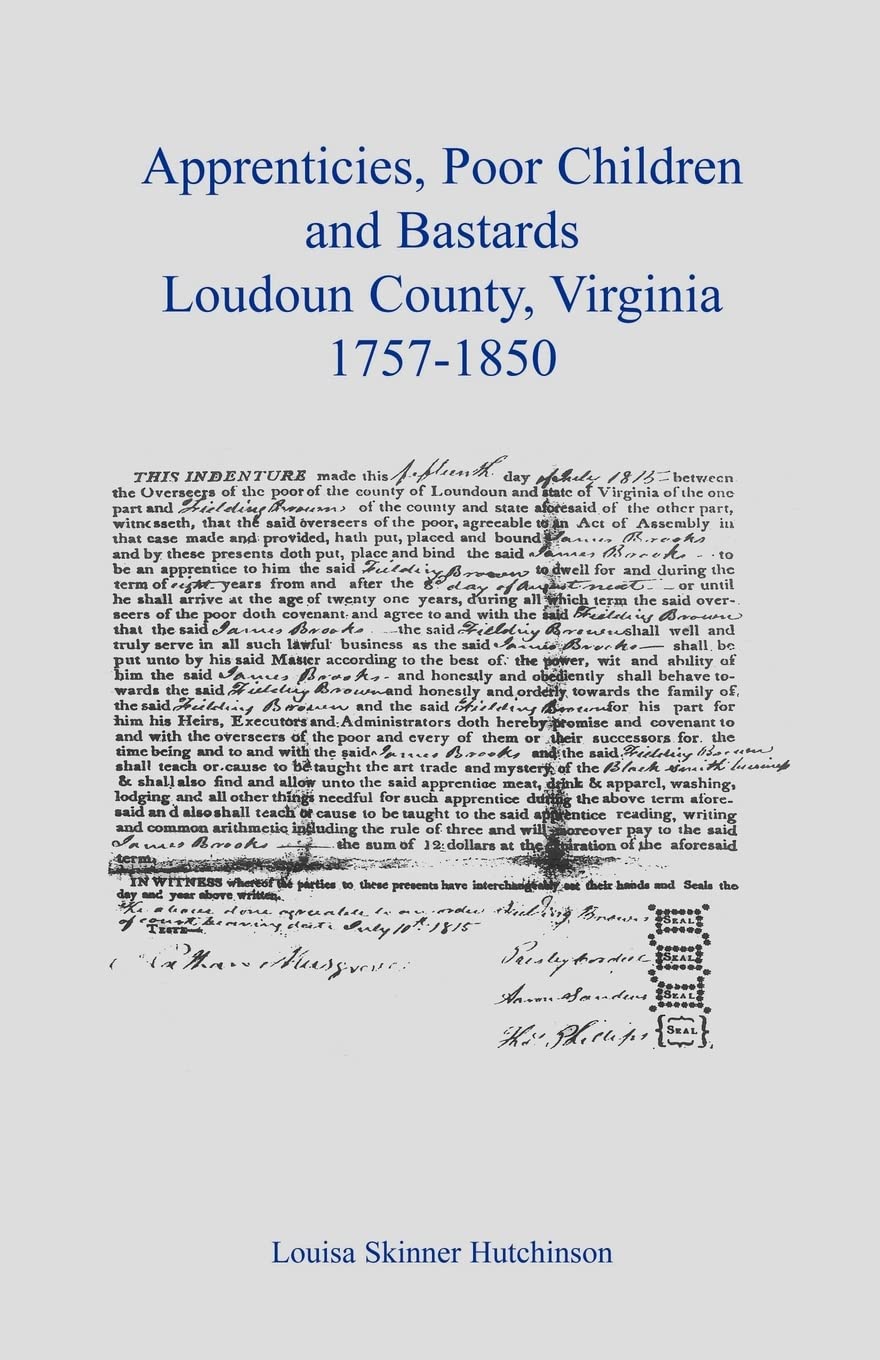 Apprenticies, Poor Children
and Bastards
Loudoun County, Virginia
1757-1850
THIS INDENTURE made this fifteenth day of July 1815 between
the Overseers of the poor of the county of Loundoun and state of Virginia of the one
part and Fielding Brown of the county and state aforesaid of the other part,
witnesseth, that the said overseers of the poor, agreeable to an Act of Assembly in
that case made and provided, hath put, placed and bound James Brooks
and by these presents doth put, place and bind the said James Brooks to
be an apprentice to him the said Fielding Brown to dwell for and during the
term of eight years from and after the 8 day of August next or until
he shall arrive at the age of twenty one years, during all which term the said over-
seers of the poor doth covenant and agree to and with the said Fielding Brown
that the said James Brooks the said Fielding Brown shall well and
truly serve in all such lawful business as the said James Brooks shall be
put unto by his said Master according to the best of the power, wit and ability of
him the said James Brooks - and honestly and obediently shall behave to-
wards the said Fielding Brown and honestly and orderly towards the family of
the said Fielding Brown and the said Fielding Brown for his part for
him his Heirs, Executors and Administrators doth hereby promise and covenant to
and with the overseers of the poor and every of them or their successors for the
time being and to and with the said James Brooks and the said Fielding Brown
shall teach or cause to be taught the art trade and mystery of the Black smith
& shall also find and allow unto the said apprentice meat, drink & apparel, washing,
lodging and all other things needful for such apprentice during the above term afore-
said and also shall teach or cause to be taught to the said apprentice reading, writing
and common arithmetic including the rule of three and will moreover pay to the said
James Brooks the sum of 12 dollars at the expiration of the aforesaid
term.
IN WITNESS whereof the parties to these presents have interchangeably set their hands and Seals the
day and year above written.
The above done agreeable to an order Fielding Brown SEAL
of court bearing date July 10th 1815
TESTE
Presley Cordell SEAL
Aaron Sanders SEAL
Thos. Phillips SEAL
Louisa Skinner Hutchinson